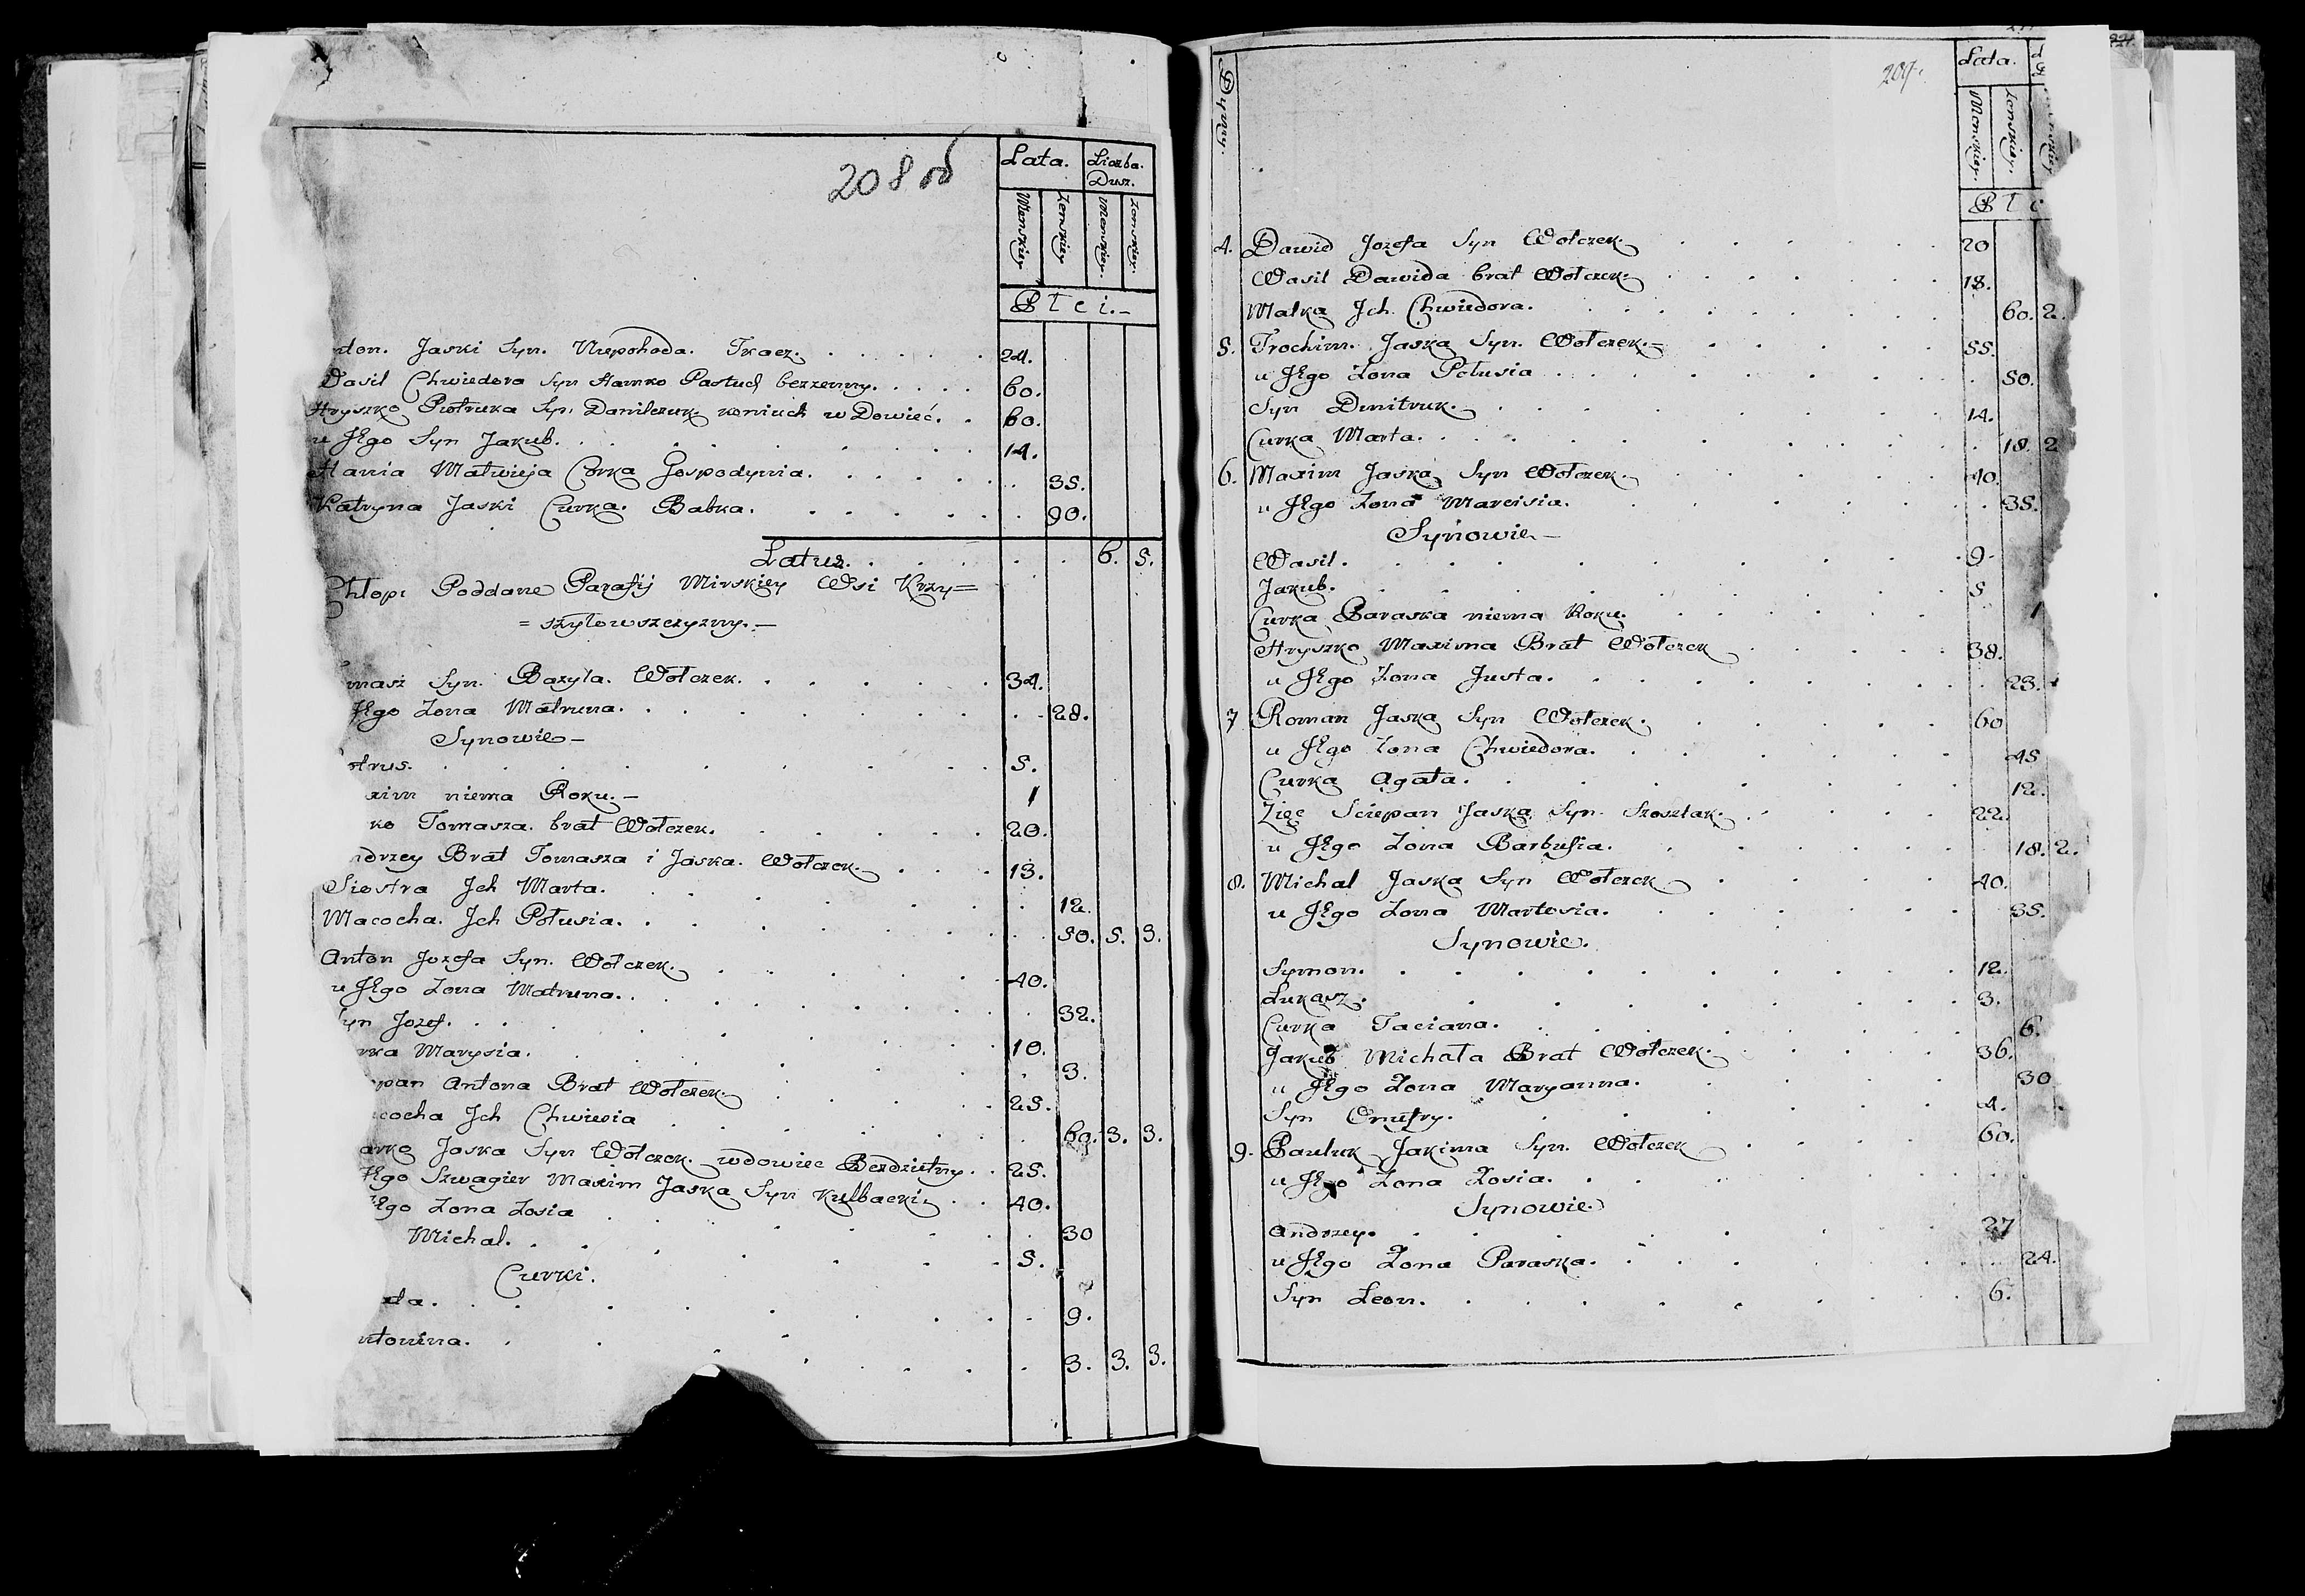 208 об
Lata. Liczba Dusz.
Męnskiey. Żenskiey. Męnskiey. Żenskiey.
Płci.-
nton. Jaski Syn. Niepohoda. Tkacz. 24.
Wasil Chwiedora Syn Hamko Pastuch bezzenny. 60.
Hryszko Piotruka Syn. Danilczuk koniuch wDowieć. 60.
u Jego Syn Jakub. 14.
Hania Matwieja Corka Gospodynia. 35.
Katryna Jaski Curka. Babka. 90.
Latus. 6. 5.
Chłopi Poddane Parafij Mirskiey Wsi Krzy=
=szyłowszczyzny.-
masz Syn. Bazyla. Wołczek. 34.
Jego Zona Matruna. 28.
Synowie-
otrus. 5.
xim niema Roku.- 1
ko Tomasza. brat Wołczek. 20.
ndrzey Brat Tomasza i Jaska. Wołczek. 13.
Siostra Jch Marta. 12.
Macocha. Jch Połusia. 50. 5. 3.
Anton Jozefa Syn. Wołczek. 40.
u Jego Zona Matruna. 32.
yn Jozef. 10.
rka Marysia. 3.
epan Antona Brat Wołczek. 25.
cocha Jch Chwiesia 60. 3. 3.
arko Jaska Syn Wołczek. wdowiec Bezdzietny. 25.
Jego Szwagier Maxim Jaska Syn Kulbacki 40.
Jego Zona Zosia 30
Michal. 5.
Curki.
ata. 9.
ntonina. 3. 3. 3.
Dymy.
209.
Lata.
Męnskiey. Żenskiey.
Płc
4. Dawid Jozefa Syn Wołczek. 20
Wasil Dawida brat Wołczek. 18.
Matka Jch Chwiedora. 60. 2.
5. Trochim. Jaska Syn. Wołczek.- 55.
u Jego Zona Połusia 50.
Syn Dmitruk. 14.
Curka Marta. 18. 2
6. Maxim Jaska Syn Wołczek. 40.
u Jego Zona Marcisia. 35.
Synowie-
Wasil. 9.
Jakub. 5
Curka Paraska niema Roku. 1
Hryszko Maxima Brat Wołczek 38.
u Jego Zona Justa. 23.
7 Roman Jaska Syn Wołczek. 60
u Jego Zona Chwiedora. 45
Curka Agata. 12.
Zięc Sciepan Jaska Syn. Szosztak. 22.
u Jego Zona Barbusia. 18. 2.
8. Michal Jaska Syn Wołczek 40.
u Jego Zona Martosia. 35.
Synowie.
Symon. 12.
Łukasz. 3.
Curka Taciana. 6.
Jakub Michała Brat Wołczek. 36.
u Jego Zona Maryanna. 30
Syn Omutry. 4.
9. Pauluk Jakima Syn. Wołczek 60.
u Jego Zona Zosia.
Synowie.
Andrzey. 27
u Jego Zona Paraska. 24.
Syn Leon. 6.